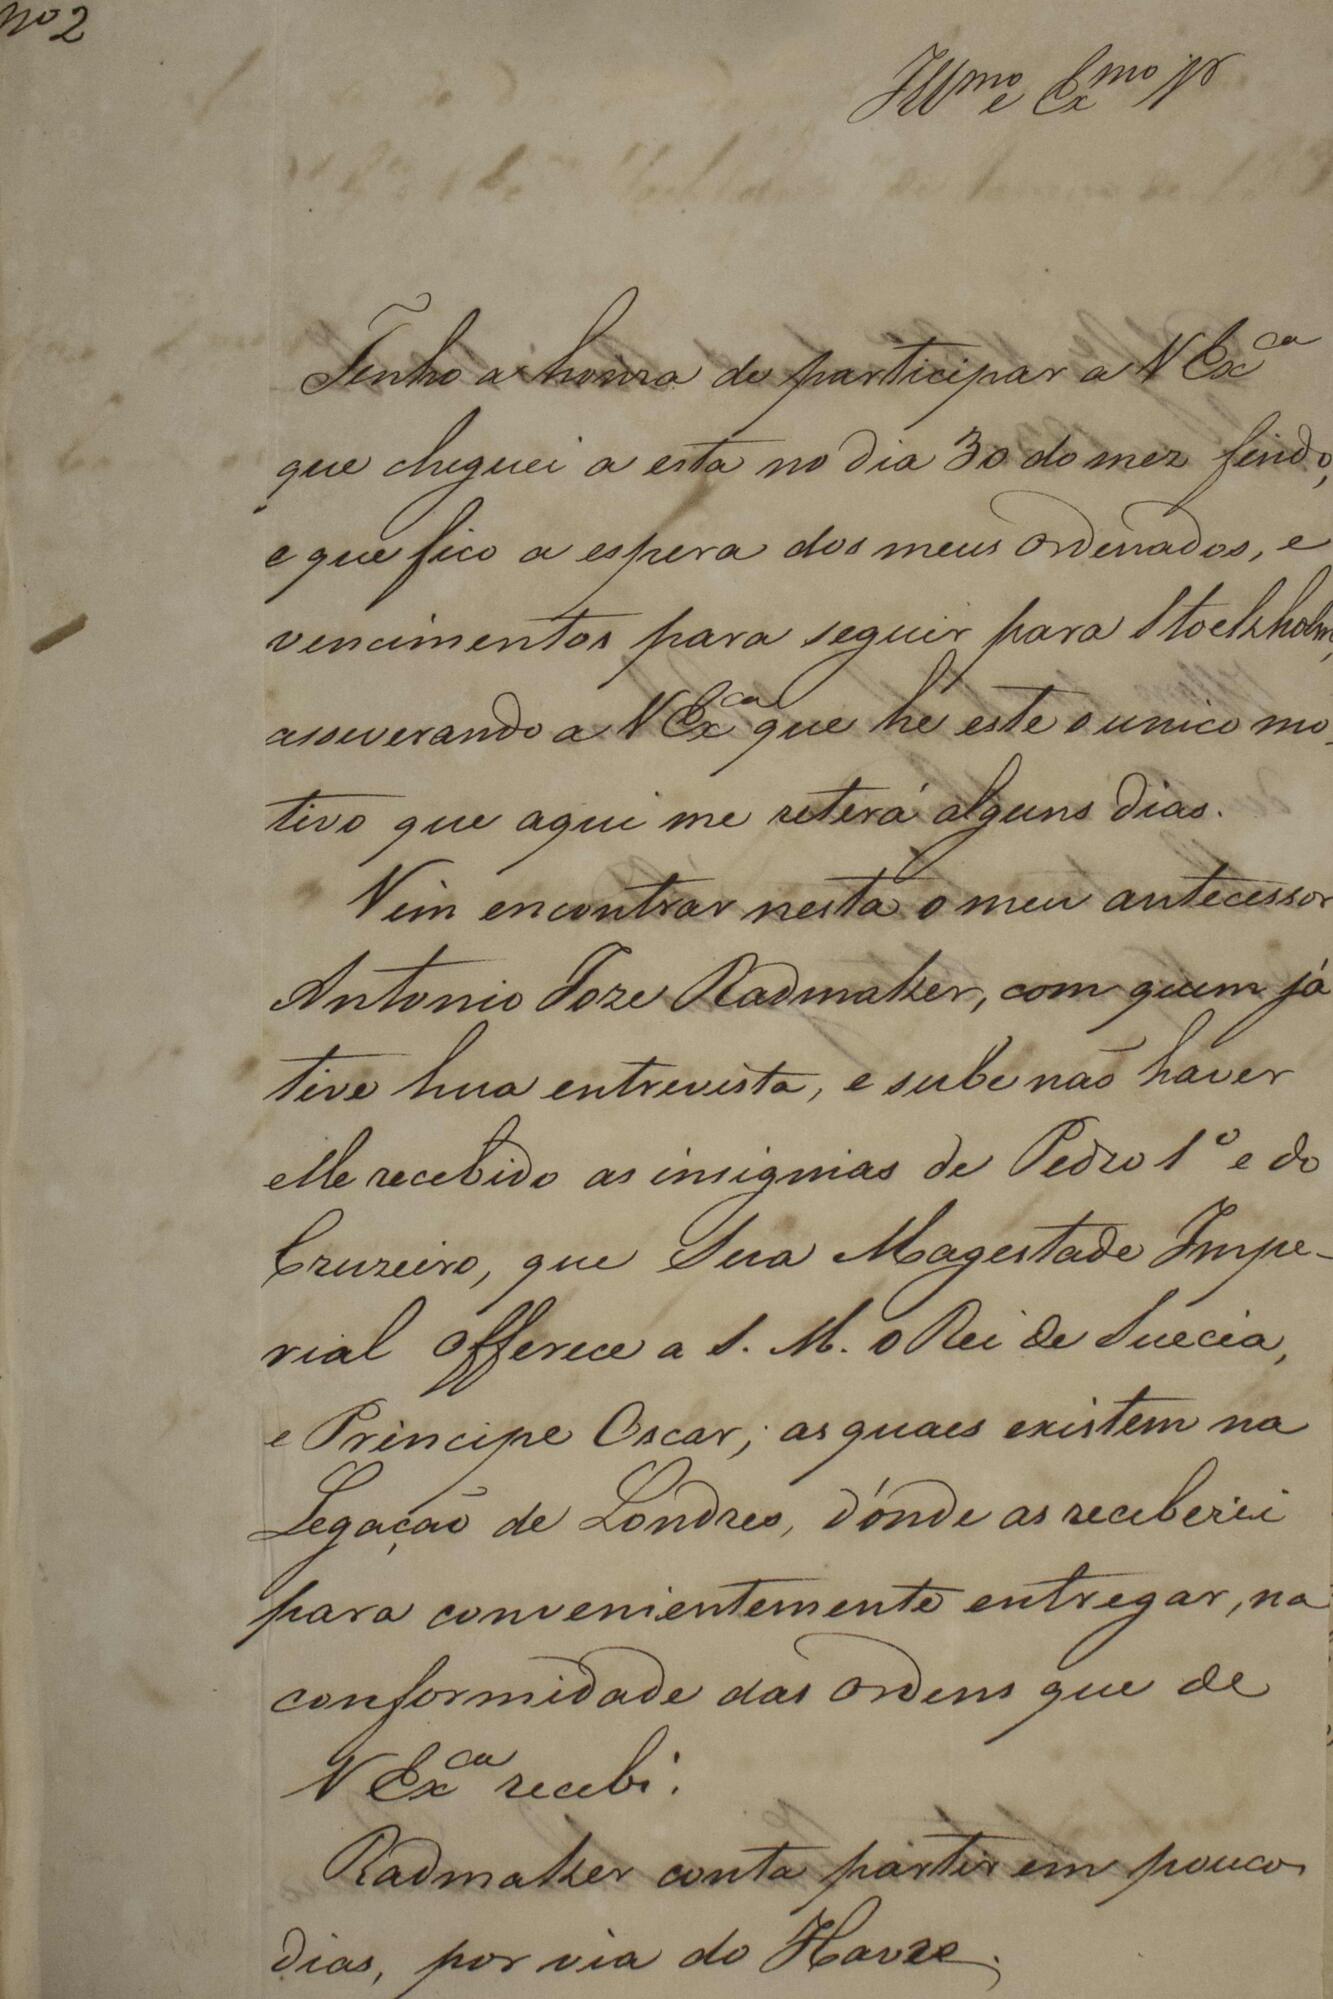 Nº 2
Illmo e Exmo Sr
Tenho a honra de participar a V Exca
que cheguei a esta no dia 30 do mez findo,
e que fico a espera dos meus ordenados, e
vencimentos para seguir para Stockholm,
asseverando a V Exca que hé este o unico mo-
tivo que aqui me reterá alguns dias.
Vim encontrar nesta o meu antecessor
Antonio Joze Radmaker, com quem já
tive hua entrevista, e sube não haver
elle recebido as insignias de Pedro 1º e do
Cruzeiro, que Sua Magestade Impe-
rial offerece a S. M. o Rei de Suecia,
e Principe Oscar; as quaes existem na
Legação de Londres, d'ónde as receberei
para convenientemente entregar, na
conformidade das ordens que de
V Exca recebi.
Radmaker conta partir em poucos
dias, por via do Havre.